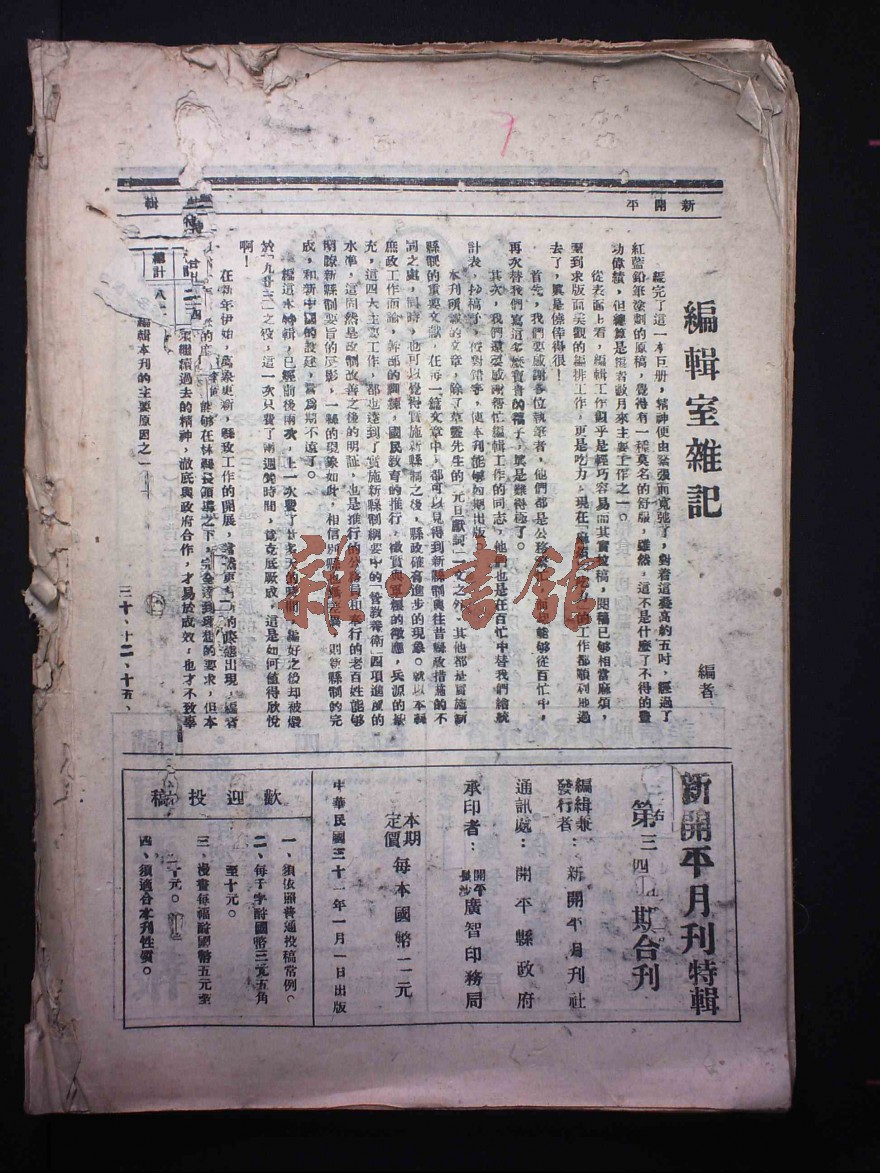 新開平
輯
編輯室雜記
編者
編完了這一本巨册,精神便由緊張而寬弛了,對着這臺高約五吋,經過了
紅藍鉛筆塗劃的原稿,覺得有一種莫名的舒服,雖然,這不是什麼了不得的豐
功偉績,但總算是編者數月來主要工作之一。
從表面上看,編輯工作似乎是輕巧容易而其實拉稿,閱稿已够相當麻煩,
至到求版面美觀的編排工作,更是吃力,現在「麻煩」「吃力」的工作都順利地過
去了,眞是僥倖得很!
首先,我們要感謝各位執筆者,他們都是公務繁忙,
能够從百忙中,
再次替我們寫這多麼寶貴的稿子,眞是難得極了。
其次,我們還要感謝帮忙編輯工作的同志,他們也是在百忙中替我們繪統
計表,抄稿子,校對錯字,使本刊能够如期出版。
本刊所載的文章,除了草盤先生的「元旦獻詞」一文之外,其他都是實施新
縣制的重要文獻,在每一篇文章中,都可以見得到新縣制與往昔縣政措施的不
同之處,同時,也可以覺得實施新縣制之後,縣政確有進步的現象。就以本縣
庶政工作而論,幹部的訓練,國民教育的推行,徵實與軍糧的徵應,兵源的補
充,這四大主要工作,都也達到了實施新縣制綱要中的「管教養衛」四項進度的
水準,這固然是改制改善之後的明証,也是推行的公務員和奉行的老百姓能够
明瞭新縣制要旨的反影,一縣的現象如此,相信別縣也
則新縣制的完
成,和新中國的設建,當爲期不遠了。
編這本特輯,已經前後兩次,上一次費了廿多天的時間,編好之後却被燬
於「九廿三」之役,這一次只費了兩週幾時間,竟克底厥成,這是如何值得欣悅
啊!
在新年伊始,萬象更新,縣政工作的開展,當然更有新的姿態出現,編者
能够在林縣長領導之下,完全達到理想的要求,但本
繼續過去的精神,澈底與政府合作,才易於成效,也才不致辜
總計
編輯本刊的主要原因之一
三十、十二、十五、
新開平月刊特輯
第三四五期合刊
編輯兼發行者:新開平月刊社
通訊處:開平縣政府
承印者:開平長沙廣智印務局
本期定價每本國幣二元
中華民國三十一年一月一日出版
歡迎投稿
一、須依照普通投稿常例。
二、每千字酧國幣三元五角
至十元。
三、漫畫每福酧國幣五元至
二十元。
四、須適合本刊性質。
雜·書館